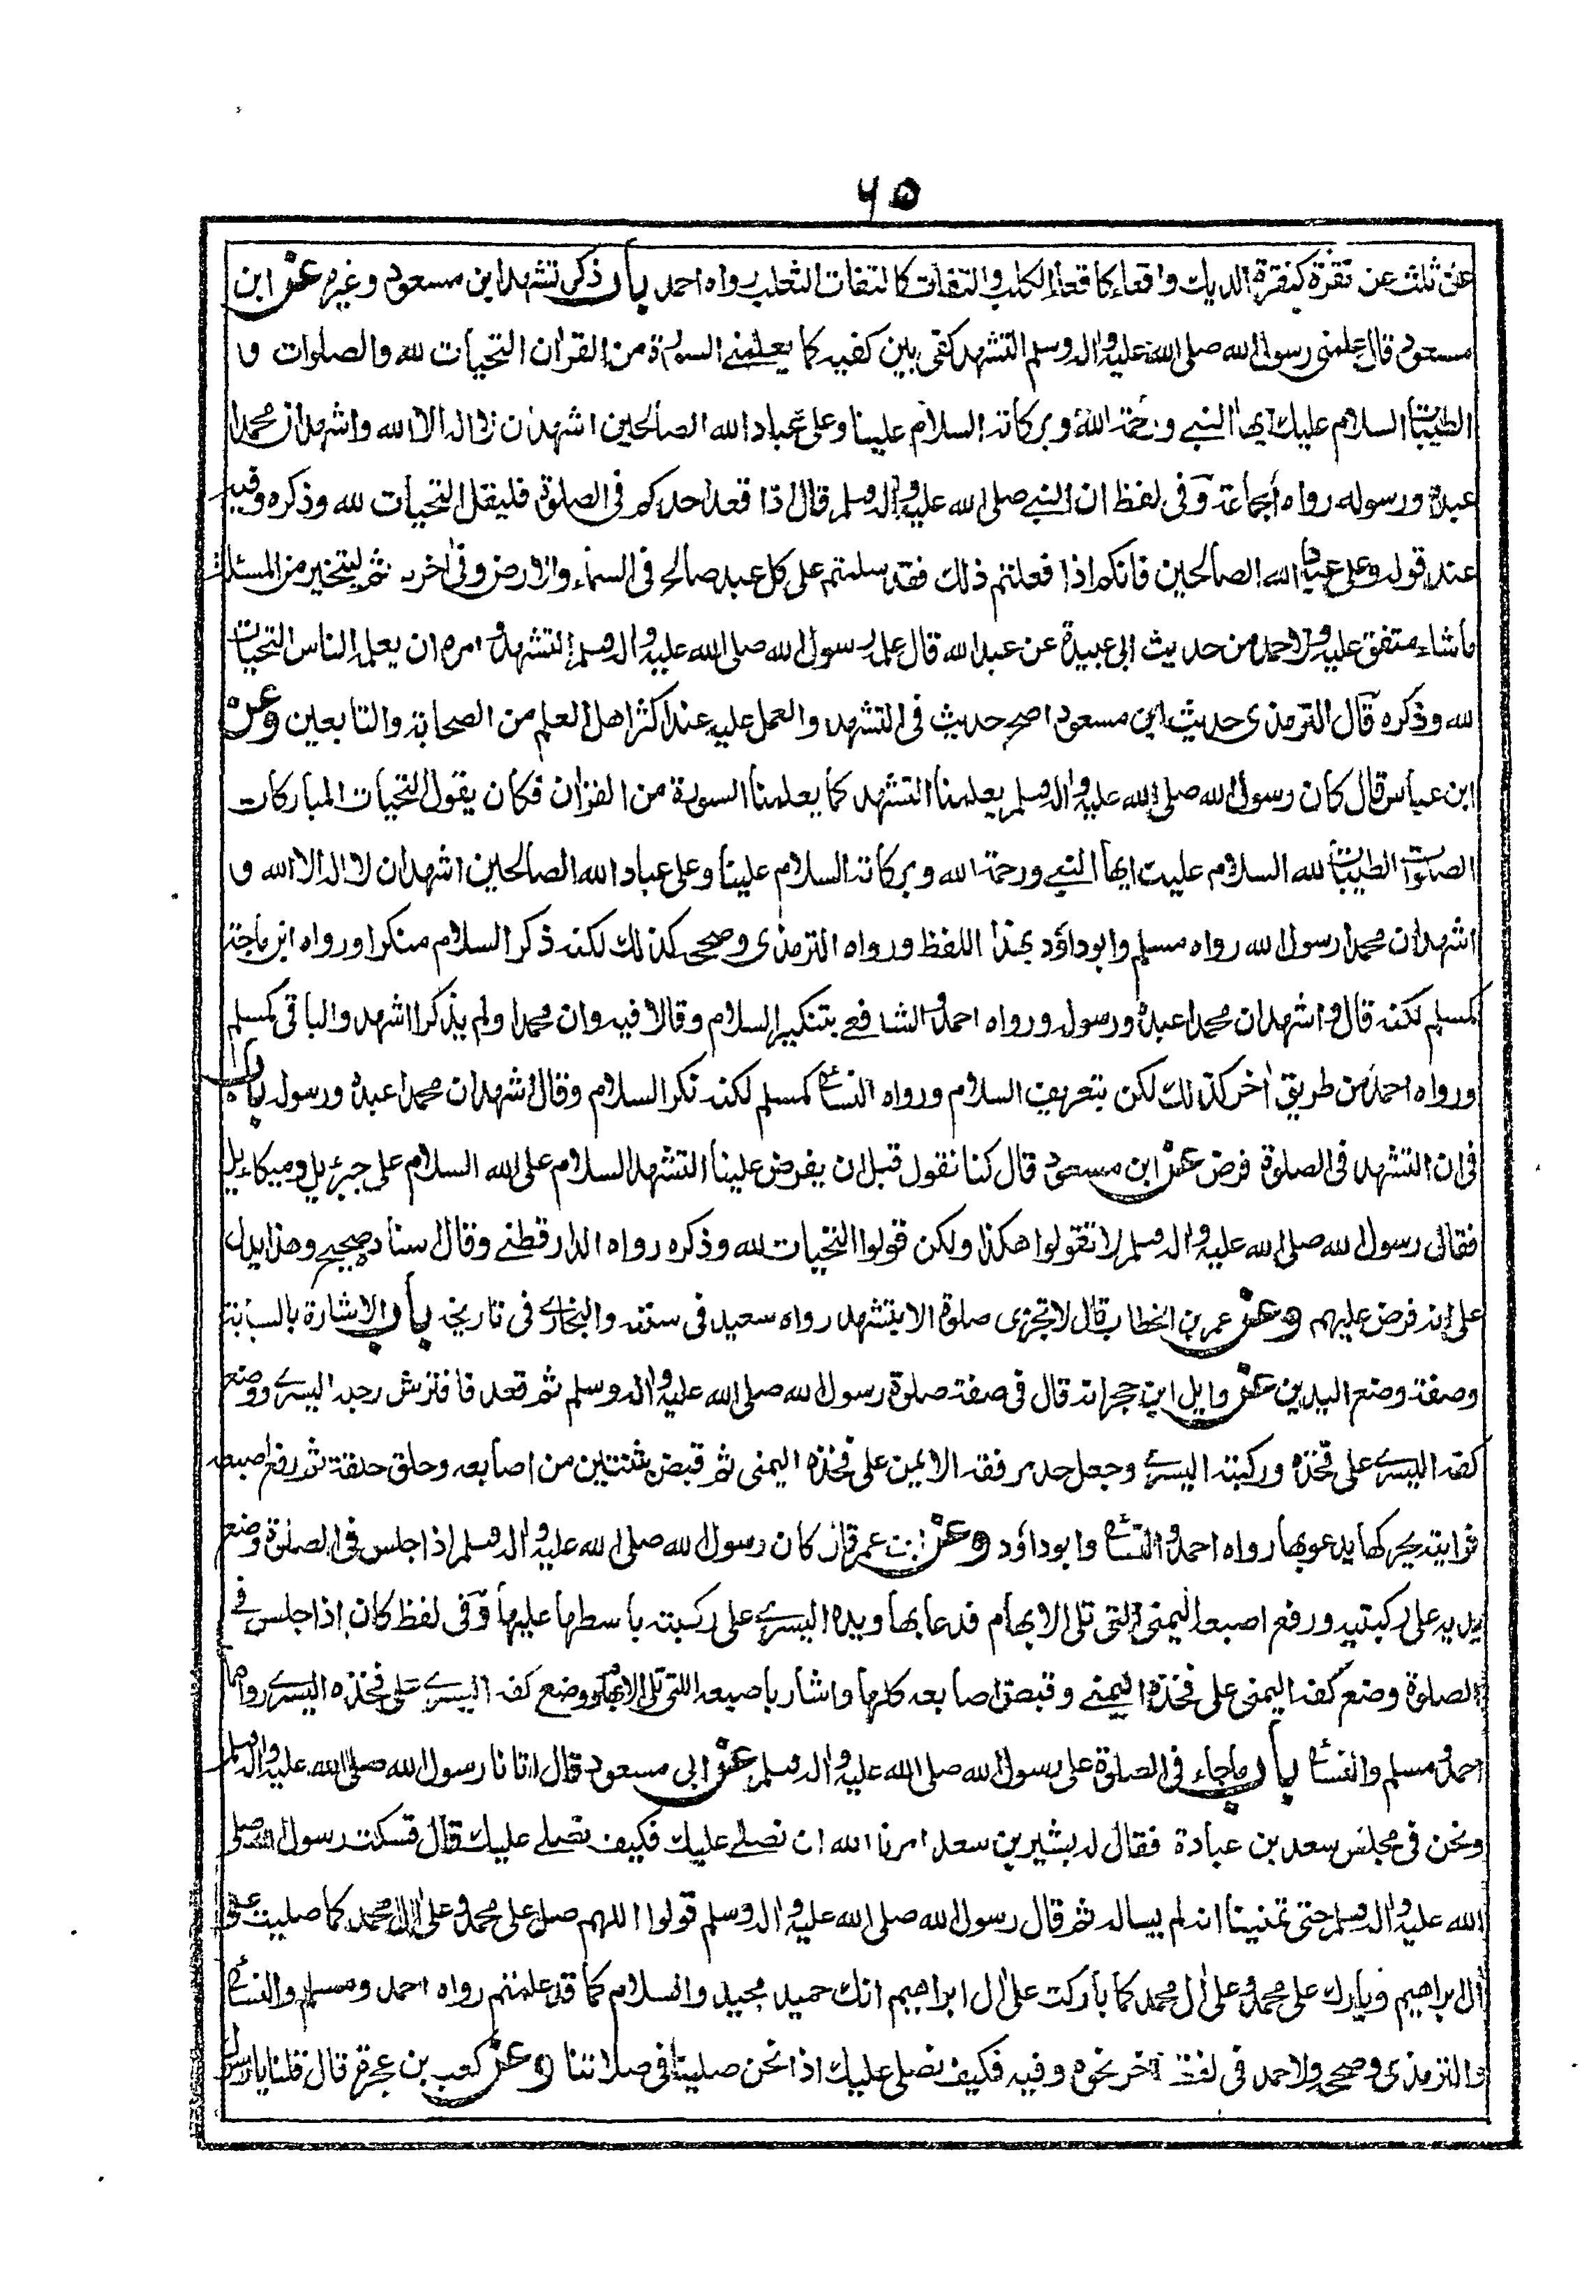 ٦٥
عن ثلث عن نقرة كنقرة الديك واقعاء كاقعاء الكلب والتفات كالتفات الثعلب رواه احمد باب ذكر تشهد ابن مسعود وغيره عن ابن
مسعود قال علمنى رسول الله صلى الله عليه واله وسلم التشهد كفى بين كفيه كما يعلمنے السورة من القران التحيات لله والصلوات و
الطيبات السلام عليك ايها النبے ورحمة الله وبركاته السلام علينا وعلى عباد الله الصالحين اشهد ان لا اله الا الله واشهد ان محمدا
عبده ورسوله رواه الجماعة وفى لفظ ان النبے صلى الله عليه واله وسلم قال اذا قعد احدكم فى الصلوة فليقل التحيات لله وذكره وفيه
عند قوله وعلى عباد الله الصالحين فانكم اذا فعلتم ذلك فقد سلمتم على كل عبد صالح فى السماء والارض وفى اخره ثم ليتخير من المسئلة
ماشاء متفق عليه ولاحمد من حديث ابى عبيدة عن عبد الله قال علمه رسول الله صلى الله عليه واله وسلم التشهد وامره ان يعلمه الناس التحيات
لله وذكره قال الترمذى حديث ابن مسعود اصح حديث فى التشهد والعمل عليه عند اكثر اهل العلم من الصحابة والتابعين وعن
ابن عباس قال كان رسول الله صلى الله عليه واله وسلم يعلمنا التشهد كما يعلمنا السورة من القران فكان يقول التحيات المباركات
الصلوات الطيبات لله السلام عليك ايها النبے ورحمة الله وبركاته السلام علينا وعلى عباد الله الصالحين اشهد ان لا اله الا الله و
اشهد ان محمدا رسول الله رواه مسلم وابوداؤد بهذا اللفظ ورواه الترمذى وصححه كذلك لكنه ذكر السلام منكرا ورواه ابن ماجة
كمسلم لكنه قال واشهد ان محمدا عبده ورسوله ورواه احمد والشافعے بتنكير السلام وقالا فيه وان محمدا ولم يذكرا اشهد والباقى كمسلم
ورواه احمد من طريق اخر كذلك لكن بتعريف السلام ورواه النسائے كمسلم لكنه نكر السلام وقال اشهد ان محمدا عبده ورسوله باب
فى ان التشهد فى الصلوة فرض عن ابن مسعود قال كنا نقول قبل ان يفرض علينا التشهد السلام على الله السلام على جبرئيل وميكائيل
فقال رسول الله صلى الله عليه واله وسلم لا تقولوا هكذا ولكن قولوا التحيات لله وذكره رواه الدارقطنے وقال اسناده صحيح وهذا يدل
على انه فرض عليهم وعن عمر بن الخطاب قال لا تجزى صلوة الا بتشهد رواه سعيد فى سننه والبخارى فى تاريخه باب الاشارة بالسبابة
وصفة وضع اليدين عن وايل ابن حجر انه قال فى صفة صلوة رسول الله صلى الله عليه واله وسلم ثم قعد فافترش رجله اليسرے ووضع
كفه اليسرے على فخذه وركبته اليسرے وجعل حد مرفقه الايمن على فخذه اليمنى ثم قبض ثنتين من اصابعه وحلق حلقة ثم رفع اصبعه
فرايته يحركها يدعوبها رواه احمد والنسائے وابوداؤد وعن ابن عمر قال كان رسول الله صلى الله عليه واله وسلم اذا جلس فى الصلوة وضع
يديه على ركبتيه ورفع اصبعه اليمنى التى تلى الابهام فدعا بها ويده اليسرے على ركبته باسطها عليها وفى لفظ كان اذا جلس فے
الصلوة وضع كفه اليمنى على فخذه اليمنے وقبض اصابعه كلها واشار باصبعه التى تلى الابهام ووضع كفه اليسرے على فخذه اليسرے رواهما
احمد ومسلم والنسائے باب ماجاء فى الصلوة على رسول الله صلى الله عليه واله وسلم عن ابى مسعود قال اتانا رسول الله صلى الله عليه واله وسلم
ونحن فى مجلس سعد بن عبادة فقال له بشير بن سعد امرنا الله ان نصلے عليك فكيف نصلے عليك قال فسكت رسول الله صلى
الله عليه واله وسلم حتى تمنينا انه لم يساله ثم قال رسول الله صلى الله عليه واله وسلم قولوا اللهم صل على محمد وعلى ال محمد كما صليت على
ال ابراهيم وبارك على محمد وعلى ال محمد كما باركت على ال ابراهيم انك حميد مجيد والسلام كما قد علمتم رواه احمد ومسلم والنسائے
والترمذى وصححه ولاحمد فى لفظ اخر نحوه وفيه فكيف نصلى عليك اذا نحن صلينا فى صلاتنا وعن كعب بن عجرة قال قلنا يا رسول